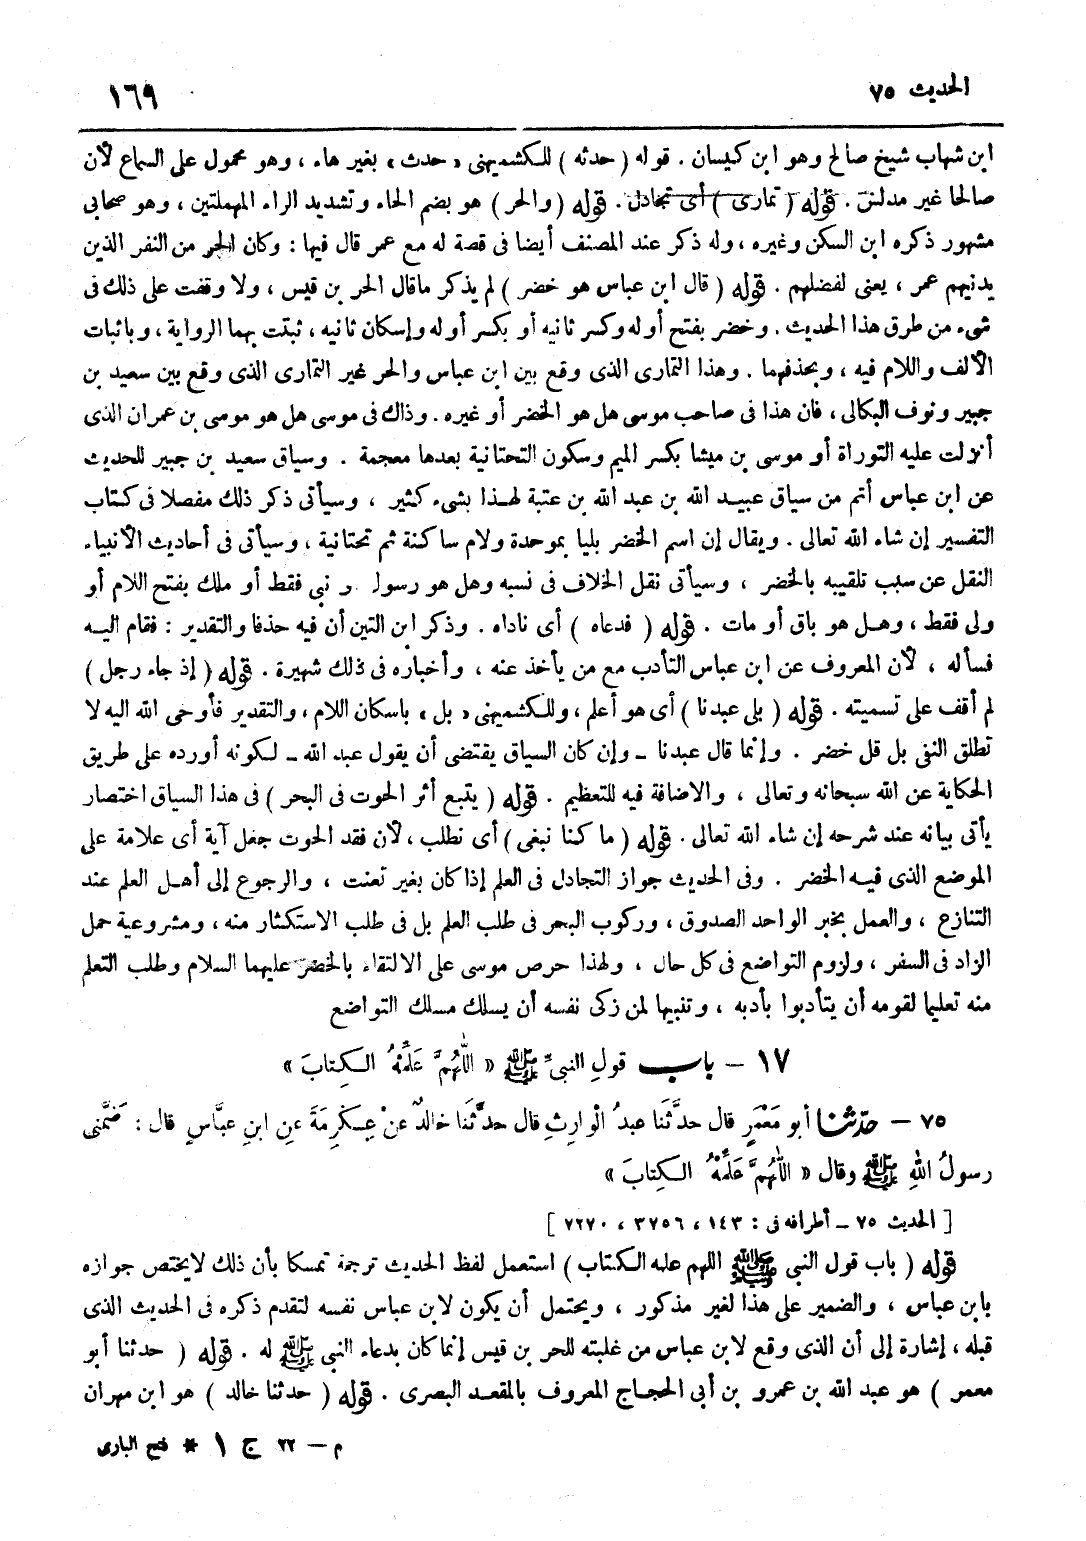 الحديث ٧٥
١٦٩
ابن شهاب شيخ صالح وهو ابن كيسان . قوله ( حدثه ) للكشميهنى « حدث » بغير هاء ، وهو محمول على السماع لأن
صالحا غير مدلس . قوله ( تمارى ) أى تجادل . قوله ( والحر ) هو بضم الحاء وتشديد الراء المهملتين ، وهو صحابى
مشهور ذكره ابن السكن وغيره ، وله ذكر عند المصنف أيضا فى قصة له مع عمر قال فيها : وكان الحر من النفر الذين
يدنيهم عمر ، يعنى لفضلهم . قوله ( قال ابن عباس هو خضر ) لم يذكر ماقال الحر بن قيس ، ولا وقفت على ذلك فى
شىء من طرق هذا الحديث . وخضر بفتح أوله وكسر ثانيه أو بكسر أوله وإسكان ثانيه ، ثبتت بهما الرواية ، وباثبات
الألف واللام فيه ، وبحذفهما . وهذا التمارى الذى وقع بين ابن عباس والحر غير التمارى الذى وقع بين سعيد بن
جبير ونوف البكالى ، فان هذا فى صاحب موسى هل هو الخضر أو غيره . وذاك فى موسى هل هو موسى بن عمران الذى
أنزلت عليه التوراة أو موسى بن ميشا بكسر الميم وسكون التحتانية بعدها معجمة . وسياق سعيد بن جبير للحديث
عن ابن عباس أتم من سياق عبيد الله بن عبد الله بن عتبة لهذا بشىء كثير ، وسيأتى ذكر ذلك مفصلا فى كتاب
التفسير إن شاء الله تعالى . ويقال إن اسم الخضر بليا بموحدة ولام ساكنة ثم تحتانية ، وسيأتى فى أحاديث الأنبياء
النقل عن سبب تلقيبه بالخضر ، وسيأتى نقل الخلاف فى نسبه وهل هو رسول و نبى فقط أو ملك بفتح اللام أو
ولى فقط ، وهل هو باق أو مات . قوله ( فدعاه ) أى ناداه . وذكر ابن التين أن فيه حذفا والتقدير : فقام اليه
فسأله ، لأن المعروف عن ابن عباس التأدب مع من يأخذ عنه ، وأخباره فى ذلك شهيرة . قوله ( إذ جاء رجل )
لم أقف على تسميته . قوله ( بلى عبدنا ) أى هو أعلم ، وللكشميهنى « بل » باسكان اللام ، والتقدير فأوحى الله اليه لا
تطلق النفى بل قل خضر . وإنما قال عبدنا ـ وإن كان السياق يقتضى أن يقول عبد الله ـ لكونه أورده على طريق
الحكاية عن الله سبحانه وتعالى ، والاضافة فيه للتعظيم . قوله ( يتبع أثر الحوت فى البحر ) فى هذا السياق اختصار
يأتى بيانه عند شرحه إن شاء الله تعالى . قوله ( ما كنا نبغى ) أى نطلب ، لأن فقد الحوت جعل آية أى علامة على
الموضع الذى فيه الخضر . وفى الحديث جواز التجادل فى العلم إذا كان بغير تعنت ، والرجوع إلى أهل العلم عند
التنازع ، والعمل بخبر الواحد الصدوق ، وركوب البحر فى طلب العلم بل فى طلب الاستكثار منه ، ومشروعية حمل
الزاد فى السفر ، ولزوم التواضع فى كل حال ، ولهذا حرص موسى على الالتقاء بالخضر عليهما السلام وطلب التعلم
منه تعليما لقومه أن يتأدبوا بأدبه ، وتنبيها لمن زكى نفسه أن يسلك مسلك التواضع
١٧ – باب قولِ النبىِّ ﷺ « اللّٰهُمَّ عَلِّمْهُ الكِتابَ »
٧٥ – حدّثنا أبو مَعْمَرٍ قال حدَّثَنا عبدُ الوارِثِ قال حدَّثَنا خالدٌ عنْ عِكرِمَةَ عنِ ابنِ عبَّاسٍ قال : ضَمَّنى
رسولُ اللهِ ﷺ وقال « اللّٰهُمَّ عَلِّمْهُ الكِتابَ »
[ الحديث ٧٥ – أطرافه فى : ١٤٣ ، ٣٧٥٦ ، ٧٢٧٠ ]
قوله ( باب قول النبى ﷺ اللهم علمه الكتاب ) استعمل لفظ الحديث ترجمة تمسكا بأن ذلك لايختص جوازه
بابن عباس ، والضمير على هذا لغير مذكور ، ويحتمل أن يكون لابن عباس نفسه لتقدم ذكره فى الحديث الذى
قبله ، إشارة إلى أن الذى وقع لابن عباس من غلبته للحر بن قيس إنما كان بدعاء النبى ﷺ له . قوله ( حدثنا أبو
معمر ) هو عبد الله بن عمرو بن أبى الحجاج المعروف بالمقعد البصرى . قوله ( حدثنا خالد ) هو ابن مهران
م – ٢٢ ج ١ * فتح البارى